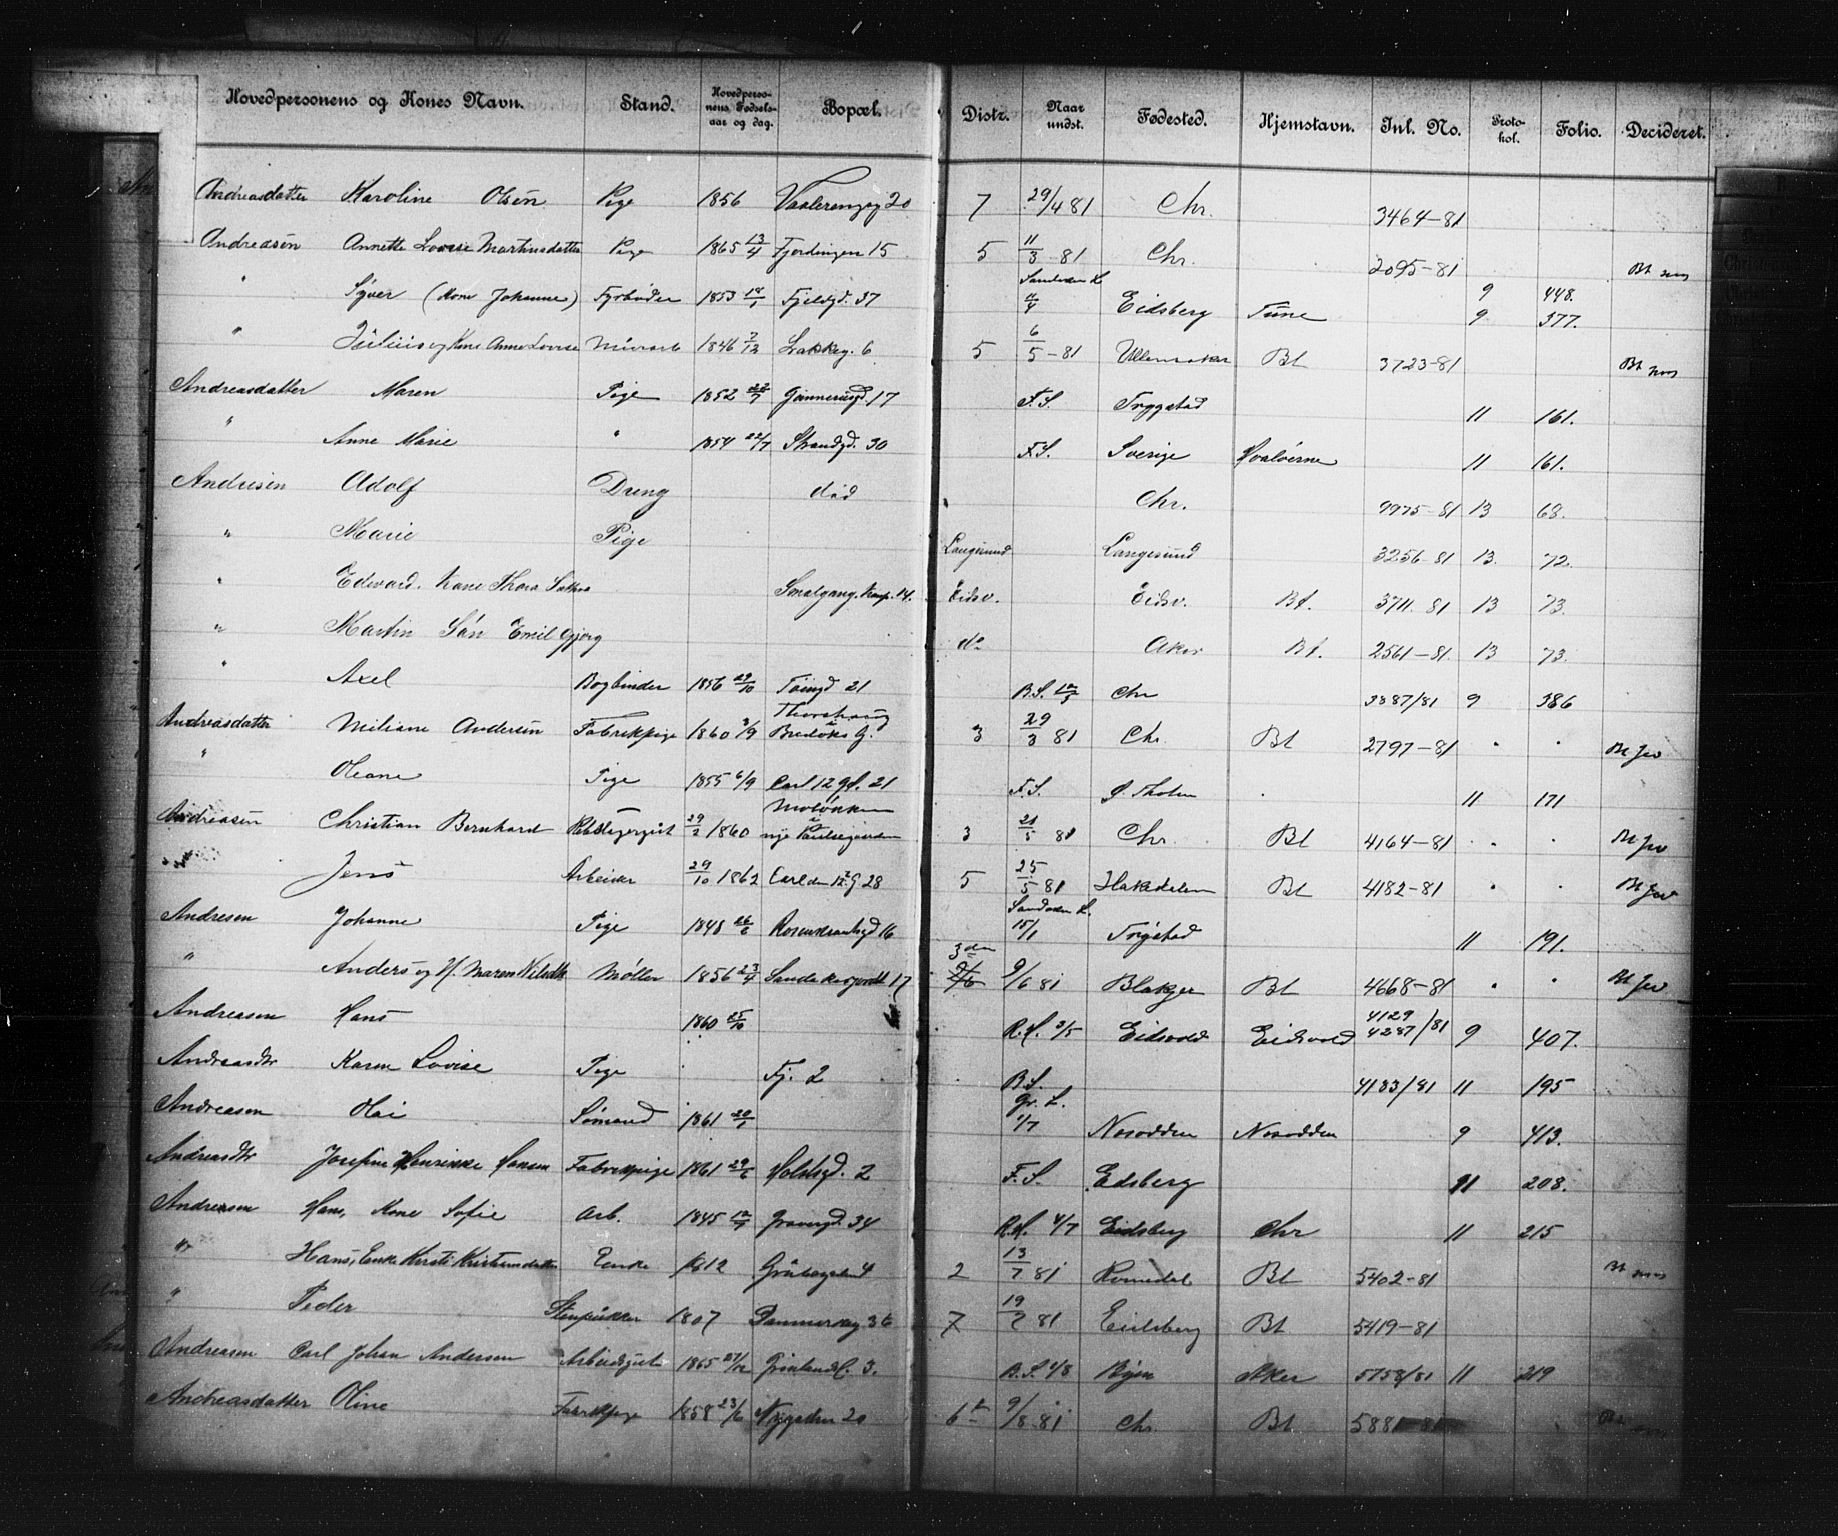 Hovedpersonens og Kones Navn. Stand. Hovedpersonens Fødselsaar og dag. Bopæl. Distr. Naar undst. Fødested. Hjemstavn. Inl. No. Protokol. Folio. Decideret.
Andreasdatter Karoline Olsen Pige 1856 Vaalerengsg 20 7 29/4 81 Chr. 3464-81
Andreasen Annette Lovise Martinsdatter Pige 1865 13/4 Fjerdingen 15 5 11/3-81 Chr. 2095-81 Bt
" Syver (Kone Johanne) Fyrbøder 1853 18/1 Fjeldgd. 37 11/4 Eidsberg Tune 9 9 448. 377.
" Julius og Kone Anne Lovise Murarb 1846 7/12 Lakkeg. 6 5 6/5-81 Ullensaker Bt 3723-81 Bt
Andreasdatter Maren Pige 1852 22/7 Grønnerisgd. 17 F.S. Trygstad 11 161.
" Anne Marie " 1854 22/7 Strandgd. 30 F.S. Sverige Hvaløerne 11 161.
Andresen Adolf Dreng død Chr. 9975-81 13 68.
" Marie Pige Langesund Langesund 3256-81 13. 72.
" Edvard. Kone Thora Smalgang. 14. Eidsv. Eidsv. Bt. 3711.81 13 73.
" Martin Søn Emil do Aker Bt. 2561-81. 13 73.
" Axel Bogbinder 1856 29/10 Tøiengd 21 B.S. Chr 3887/81 9 386
Andreasdatter Miliane Andersen Fabrikpige 1860 3/9 Thorshaug Bredoks G. 3 29/3 81 Chr. Bt 2797-81 " " Bt
" Oleane Pige 1855 6/9 Carl 12 gd. 21 F.S. 11 171
Andreasen Christian Bernhard 29/2 1860 nye Paulsegaarden 3 21/5 81 Chr. Bt 4164-81 " " Bt
" Jens Arbeider 29/10 1862 Carl den 12 G 28 5 25/5 81 Hakedalen Bt 4182-81 " " Bt
Andresen Johanne Pige 1848 26/6 Rosenkrantzgd 16 15/1 Trøgstad 11 191.
" Anders og H. Maren Nilsdtr Møller 1856 23/4 17 3die 9/6 81 Blakjer Bt 4668-81 " " Bt
Andreasen Hans 1860 25/10 R.H. 3/5 Eidsvold Eidsvold 4129 4287/81 9 407.
Andreasdtr Karen Lovise Pige Fj. 2 B.S. 4133/81 11 195
Andreasen Olai Sømand 1861 20/1 Gr. L. 1/7 Nesodden Nesodden 9 413.
Andreasdtr Josefine Henrikke Hansen Fabrikpige 1861 29/6 Holstgd. 2 F.S. Edsberg 11 208.
Andreasen Hans, Kone Sofie Arb. 1845 12/7 Gravergd. 34 R.H. 4/7 Eidsberg Chr 11 215
" Hans, Enke Kersti Kristiansdatter Enke 1812 Grubbegaden 4 2 13/7 81 Romedal Bt 5402-81 Bt
" Peder Stenpikker 1807 Dannevirkeg 36 7 19/7 81 Eidsberg Bt 5419-81
Andreasen Carl Johan Andersen Arbeidsgut 1865 27/12 Grønlandsl. 3. B.S. 4/8 Aker 5758/81 11 219
Andreasdatter Oline Fabrikpige 1858 23/6 Nygaden 20 6te 9/8-81 Chr Bt 5881-81 Bt